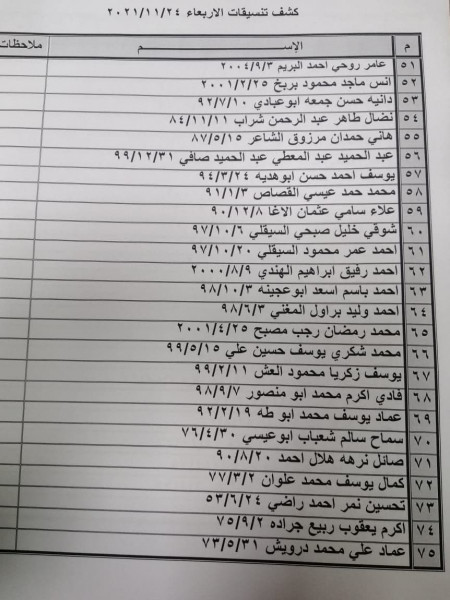 كشف تنسيقات الاربعاء ٢٠٢١/١١/٢٤
م الإســـــم ملاحظات
٥١ عامر روحي احمد البريم ٢٠٠٤/٩/٣
٥٢ انس ماجد محمود بربخ ٢٠٠١/٢/٢٥
٥٣ دانيه حسن جمعه ابوعبادي ٩٢/٧/١٠
٥٤ نضال طاهر عبد الرحمن شراب ٨٤/١١/١١
٥٥ هاني حمدان مرزوق الشاعر ٨٧/٥/١٥
٥٦ عبد الحميد عبد المعطي عبد الحميد صافي ٩٩/١٢/٣١
٥٧ يوسف احمد حسن ابوهديه ٩٤/٣/٢٤
٥٨ محمد حمد عيسي القصاص ٩١/١/٣
٥٩ علاء سامي عثمان الاغا ٩٠/١٢/٨
٦٠ شوقي خليل صبحي السيقلي ٩٧/١٠/٦
٦١ احمد عمر محمود السيقلي ٩٧/١٠/٢٠
٦٢ احمد رفيق ابراهيم الهندي ٢٠٠٠/٨/٩
٦٣ احمد باسم اسعد ابوعجينه ٩٨/١٠/٣
٦٤ احمد وليد براول المغني ٩٨/٦/٣
٦٥ محمد رمضان رجب مصبح ٢٠٠١/٤/٢٥
٦٦ محمد شكري يوسف حسين علي ٩٩/٥/١٥
٦٧ يوسف زكريا محمود العش ٩٩/٢/١١
٦٨ فادي اكرم محمد ابو منصور ٩٨/٩/٧
٦٩ عماد يوسف محمد ابو طه ٩٢/٢/١٩
٧٠ سماح سالم شعباب ابوعيسي ٧٦/٤/٣٠
٧١ صائل نرهه هلال احمد ٩٠/٨/٢٠
٧٢ كمال يوسف محمد علوان ٧٧/٣/٢
٧٣ تحسين نمر احمد راضي ٥٣/٦/٢٤
٧٤ اكرم يعقوب ربيع جراده ٧٥/٩/٢
٧٥ عماد علي محمد درويش ٧٣/٥/٣١